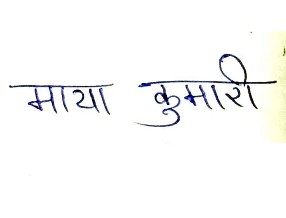 माया कुमारी